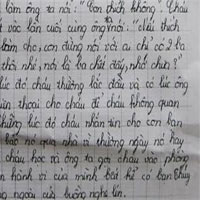 làm ông ta nói: "Con thích không". Cháu
vào lần cuối cùng ông nói: "Nếu thích
làm cho, con đừng nói với ai chỉ có 2 ba
thôi nhé, nói là ba chết đấy, nhớ chưa?
lúc đó cháu thường lắc đầu và có lúc ông
điện thoại cho cháu để cháu không quan
những lúc đó cháu nhắn tin cho con bạn
bắt nó qua nhà vì thường ngày nó hay
cháu học và ông ta gọi cháu vào phòng
hành vi của mình bất kể có bạn
ngoài cửa buồng nghe tin.